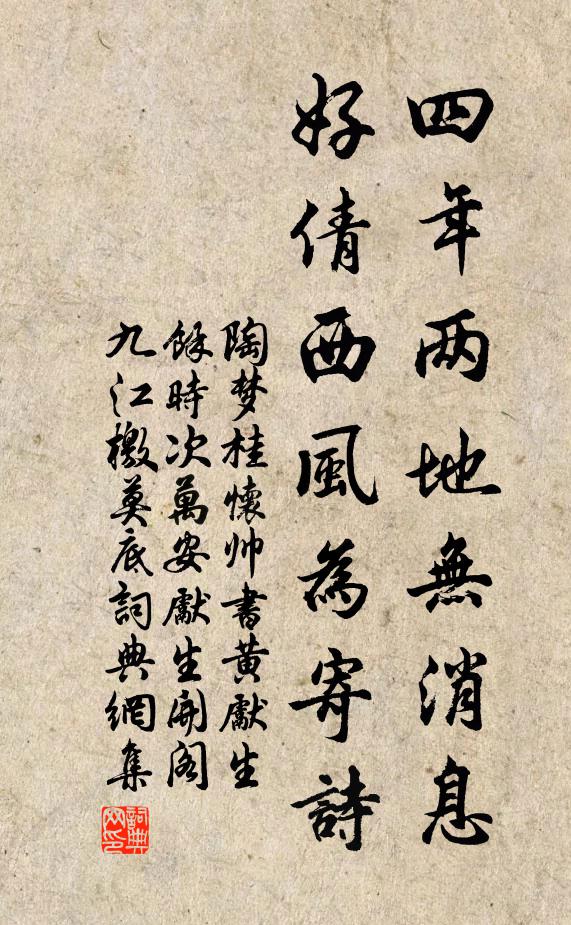 四年两地無消息
好倩西風為寄詩
陶梦桂懷帅書黄獻生
餘時次萬安獻生開閤
九江檄莫底詞典網集
詞典网印